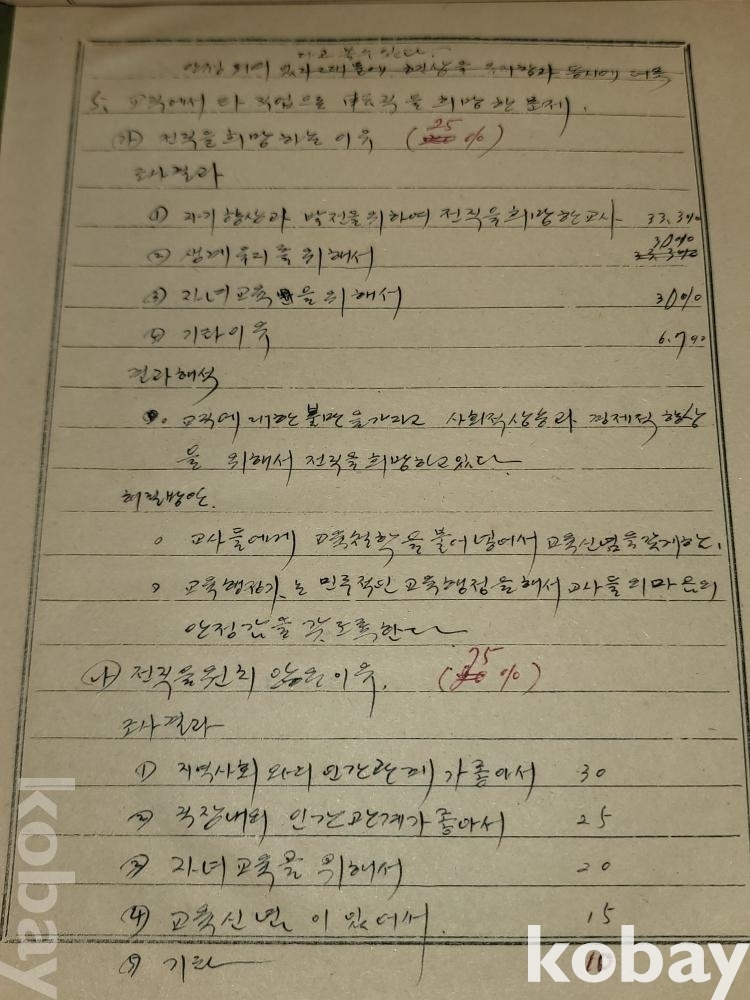 라고 볼수있다.
안정 되여 있기 때문에 현상을 유지함과 동시에 더욱
5. 교직에서 타 직업으로 転職을 희망한 문제.
(가) 전직을 희망하는 이유 (25%)
조사결과
① 자기향상과 발전을 위하여 전직을 희망한 교사 33.3%
② 생계유지를 위해서 30%
③ 자녀교육을 위해서 30%
④ 기타이유 6.7%
결과해석
○. 교직에 대한 불만을 가지고 사회적 상승과 경제적 향상
을 위해서 전직을 희망하고 있다
해결방안.
○ 교사들에게 교육철학을 불어 넣어서 교육신념을 갖게한.
○ 교육행정가는 민주적인 교육행정을 해서 교사들의 마음의
안정감을 갖도록한다
(나) 전직을 원치 않은 이유. (75%)
조사결과
① 지역사회와의 인간관계가 좋아서 30
② 직장내의 인간관계가 좋아서 25
③ 자녀교육을 위해서 20
④ 교육신념이 있어서. 15
⑤ 기타 10
kobay
kobay